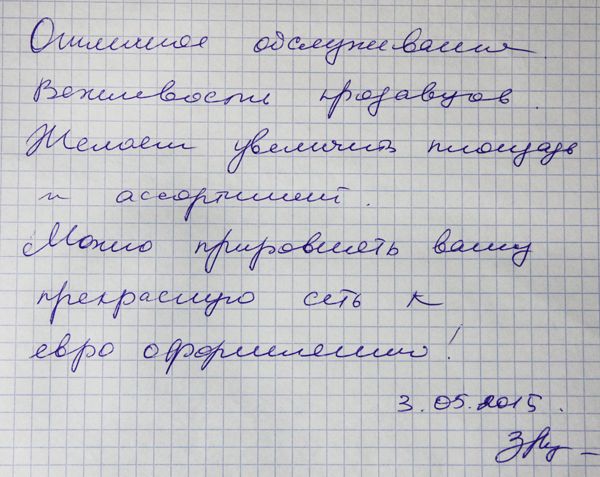 Отличное обслуживание.
Вежливость продавцов.
Желаем увеличить площадь
и ассортимент.
Можно прировнять вашу
прекрасную сеть к
евро оформлению!
3.05.2015.